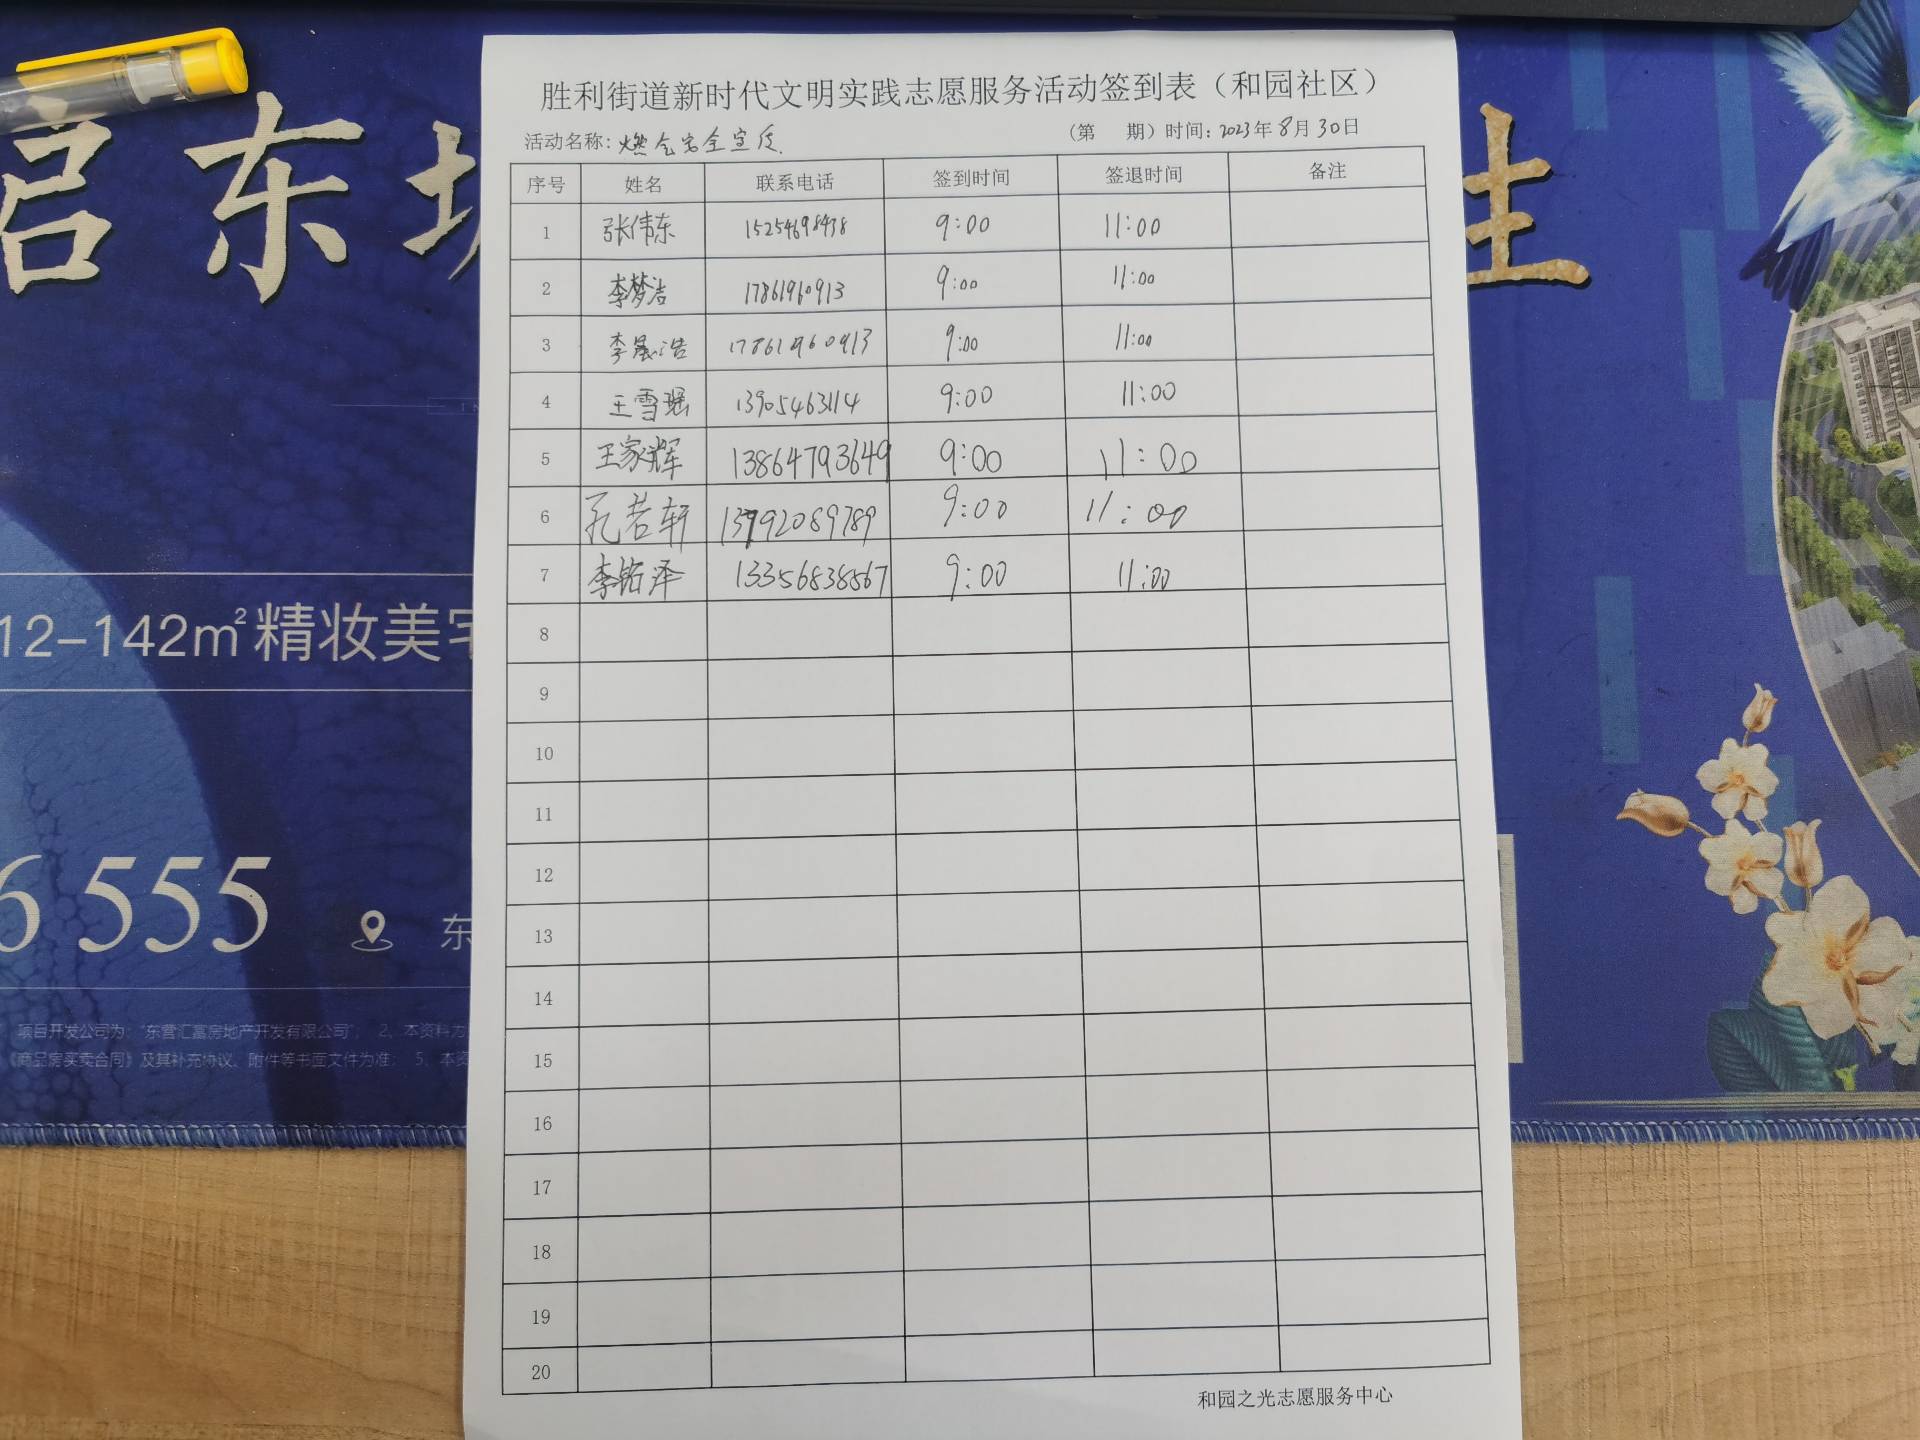 胜利街道新时代文明实践志愿服务活动签到表（和园社区）
活动名称：燃气安全宣传
（第 期）时间：2023年8月30日
序号 姓名 联系电话 签到时间 签退时间 备注
1 张伟东 15254698438 9:00 11:00
2 李梦洁 17861960913 9:00 11:00
3 李晟浩 17861960913 9:00 11:00
4 王雪瑶 13905463114 9:00 11:00
5 王家辉 13864793649 9:00 11:00
6 孔若轩 13792089789 9:00 11:00
7 李铭泽 13356838567 9:00 11:00
8
9
10
11
12
13
14
15
16
17
18
19
20
和园之光志愿服务中心
启东城
12-142m²精妆美宅
6 555
东
项目开发公司为：“东营汇富房地产开发有限公司”； 2、本资料为
《商品房买卖合同》及其补充协议、附件等书面文件为准； 5、本资